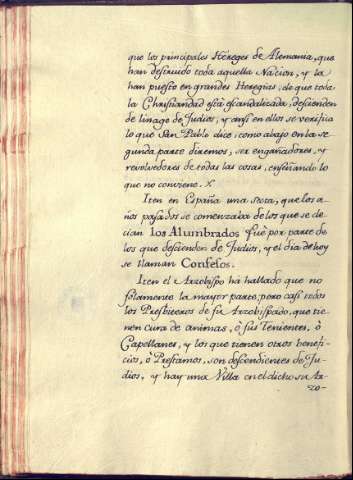 que los principales Hereges de Alemania, que
han destruido toda aquella Nacion, y la
han puesto en grandes Heregias, de que toda
la Christiandad està escandalizada, descienden
de linage de Judios, y ansi en ellos se verifica
lo que San Pablo dice, como abajo en la se-
gunda parte diremos, ser engañadores, y
revolvedores de todas las cosas, enseñando lo
que no conviene. X
Iten en España una secta, que los a-
ños pasados se comenzaba de los que se de-
cian los Alumbrados fuè por parte de
los que descienden de Judios, y el dia de hoy
se llaman Confesos.
Iten el Arzobispo ha hallado que no
solamente la mayor parte, pero casi todos
los Presbiteros de su Arzobispado, que tie-
nen cura de animas, ò sus Tenientes, ò
Capellanes, y los que tienen otros benefi-
cios, ò Prestamos, son descendientes de Ju-
dios, y hay una Villa en el dicho su Ar-
zo-